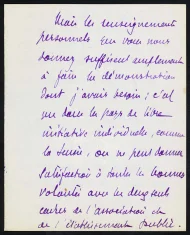 Mais les renseignements
personnels que vous nous
donnez suffisent amplement
à faire la démonstration
dont j'avais besoin ; c'est
que dans le pays de libre
initiative individuelle, comme
la Suisse, on ne peut donner
satisfaction à toutes les bonnes
volontés avec les deux seuls
cadres de l'association et
de l'établissement public.